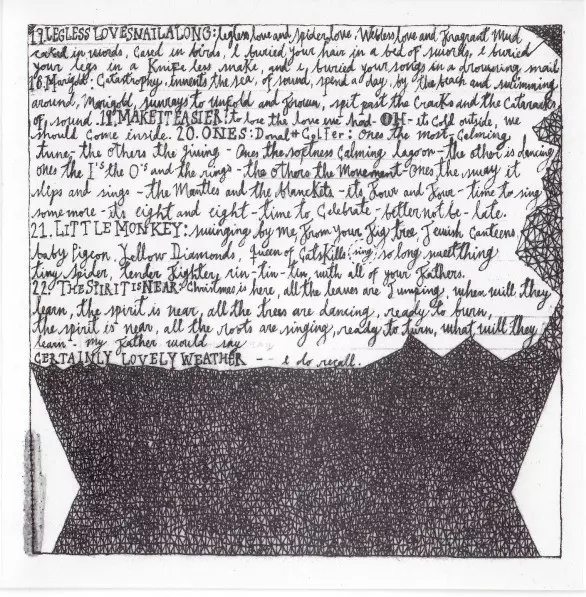 17. LEGLESS LOVE SNAIL ALONG: legless love and spider love, Webless love and Fragrant Mud
caked in words, Cased in birds, i buried your hair in a bed of swords, i buried
your legs in a Knife less snake, and i, buried your songs in a drowning snail
18. Marigold: Catastrophy, invents the sea, of sound, spend a day, by the beach and swimming
around, Marigold, sunrays to unfold and known, spit past the Cracks and the Cataracks
of sound. 19. MAKE IT EASIER: to love the love we had - OH - it Cold outside, we
should Come inside. 20. ONES: Donal + Golfer: Ones the most - Calming
tune, - the others the Jiving - Ones the softness Calming lagoon - the other is dancing
ones the I's the O's and the rings - the others the Movement - Ones the sway it
slips and sings - the Mantles and the blanckets - its Four and Four - time to sing
some more - its eight and eight - time to Celebrate - better not be - late.
21. LITTLE MONKEY: swinging by me From your Fig tree, Jewish Canteens,
baby Pigeon, Yellow Diamonds, Queen of Catskills (sing) so long sweet thing
tiny spider, tender Fighter, rin-tin-tin, with all of your Fathers.
22. THE SPIRIT IS NEAR: Christmas is here, all the leaves are Jumping, when will they
learn, the spirit is near, all the trees are dancing, ready to burn,
the spirit is near, all the roots are singing, ready to turn, what will they
learn - my father would say
CERTAINLY LOVELY WEATHER - - i do recall.